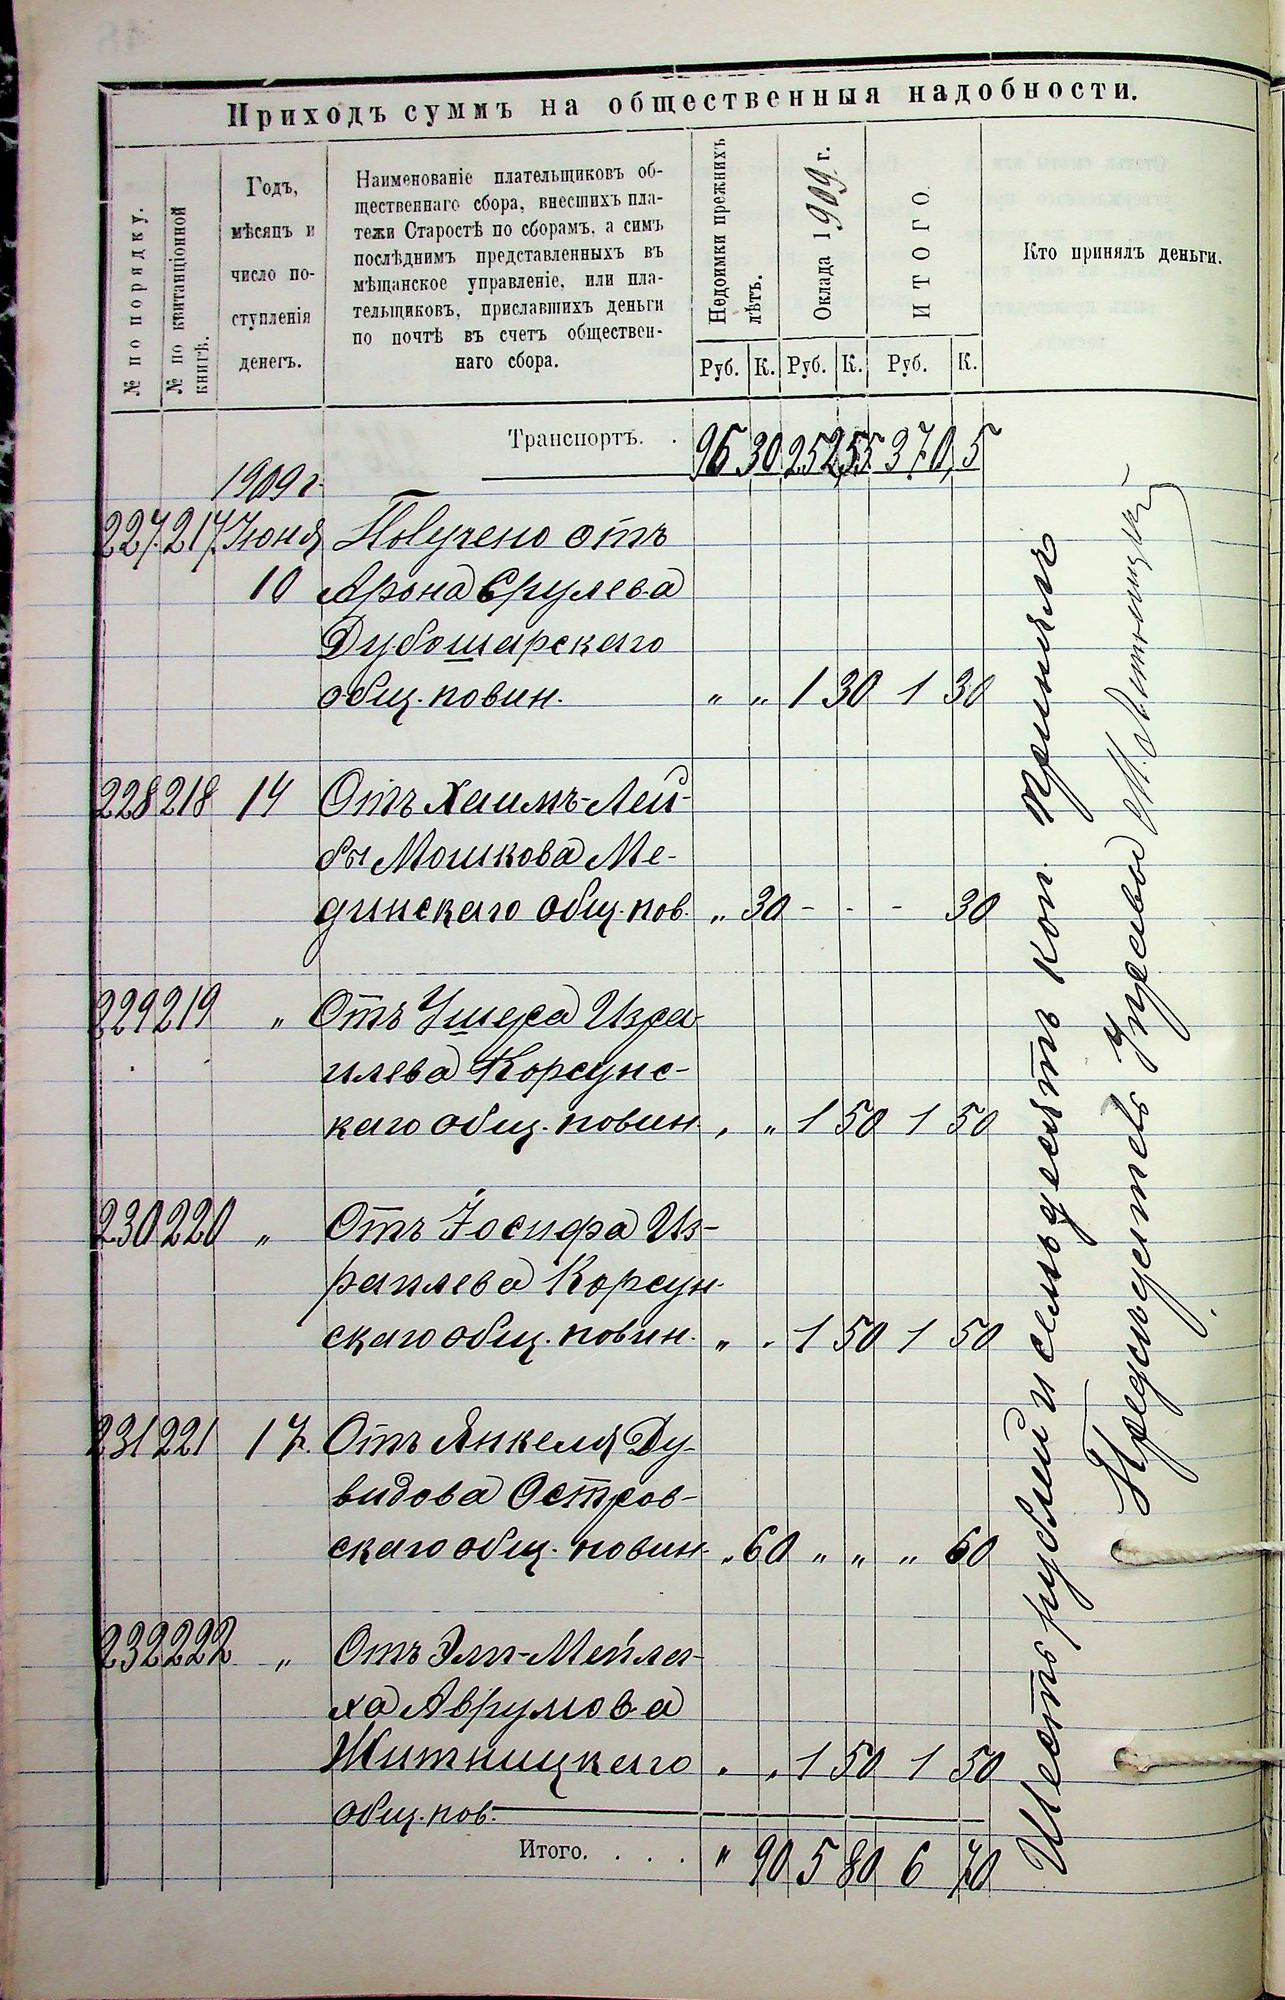 Приходъ суммъ на общественныя надобности.
№ по порядку.
№ по квитанціонной
книгѣ.
Годъ,
мѣсяцъ и
число по-
ступленія
денегъ.
Наименованіе плательщиковъ об-
щественнаго сбора, внесшихъ пла-
тежи Старостѣ по сборамъ, а симъ
послѣднимъ представленныхъ въ
мѣщанское управленіе, или пла-
тельщиковъ, приславшихъ деньги
по почтѣ въ счетъ обществен-
наго сбора.
Недоимки прежнихъ
лѣтъ.
Оклада 1909 г.
ИТОГО.
Кто принялъ деньги.
Руб. К. Руб. К. Руб. К.
Транспортъ. . 96 30 252 55 370 5
1909 г.
227. 217. Іюня Получено отъ
10 Арона Срулева
Дубошарскаго
общ. повин. " " 1 30 1 30
228 218 14 Отъ Хаимъ-Лей-
бы Мошкова Ме-
динскаго общ. пов. " 30 - - - 30
229 219 " Отъ Ушера Изра-
илева Корсунс-
каго общ. повин. " " 1 50 1 50
230 220 " Отъ Іосифа Из-
раилева Корсун-
скаго общ. повин. " " 1 50 1 50
231 221 17. Отъ Янкеля Ду-
видова Остров-
скаго общ. повин. " 60 " " " 60
232 222 " Отъ Эли-Мейла-
ха Аврумова
Житницкаго " " 1 50 1 50
общ. пов.
Итого. . . . " 90 5 80 6 70
Шесть рублей и семьдесятъ коп. принялъ
Предсѣдатель Управы М.